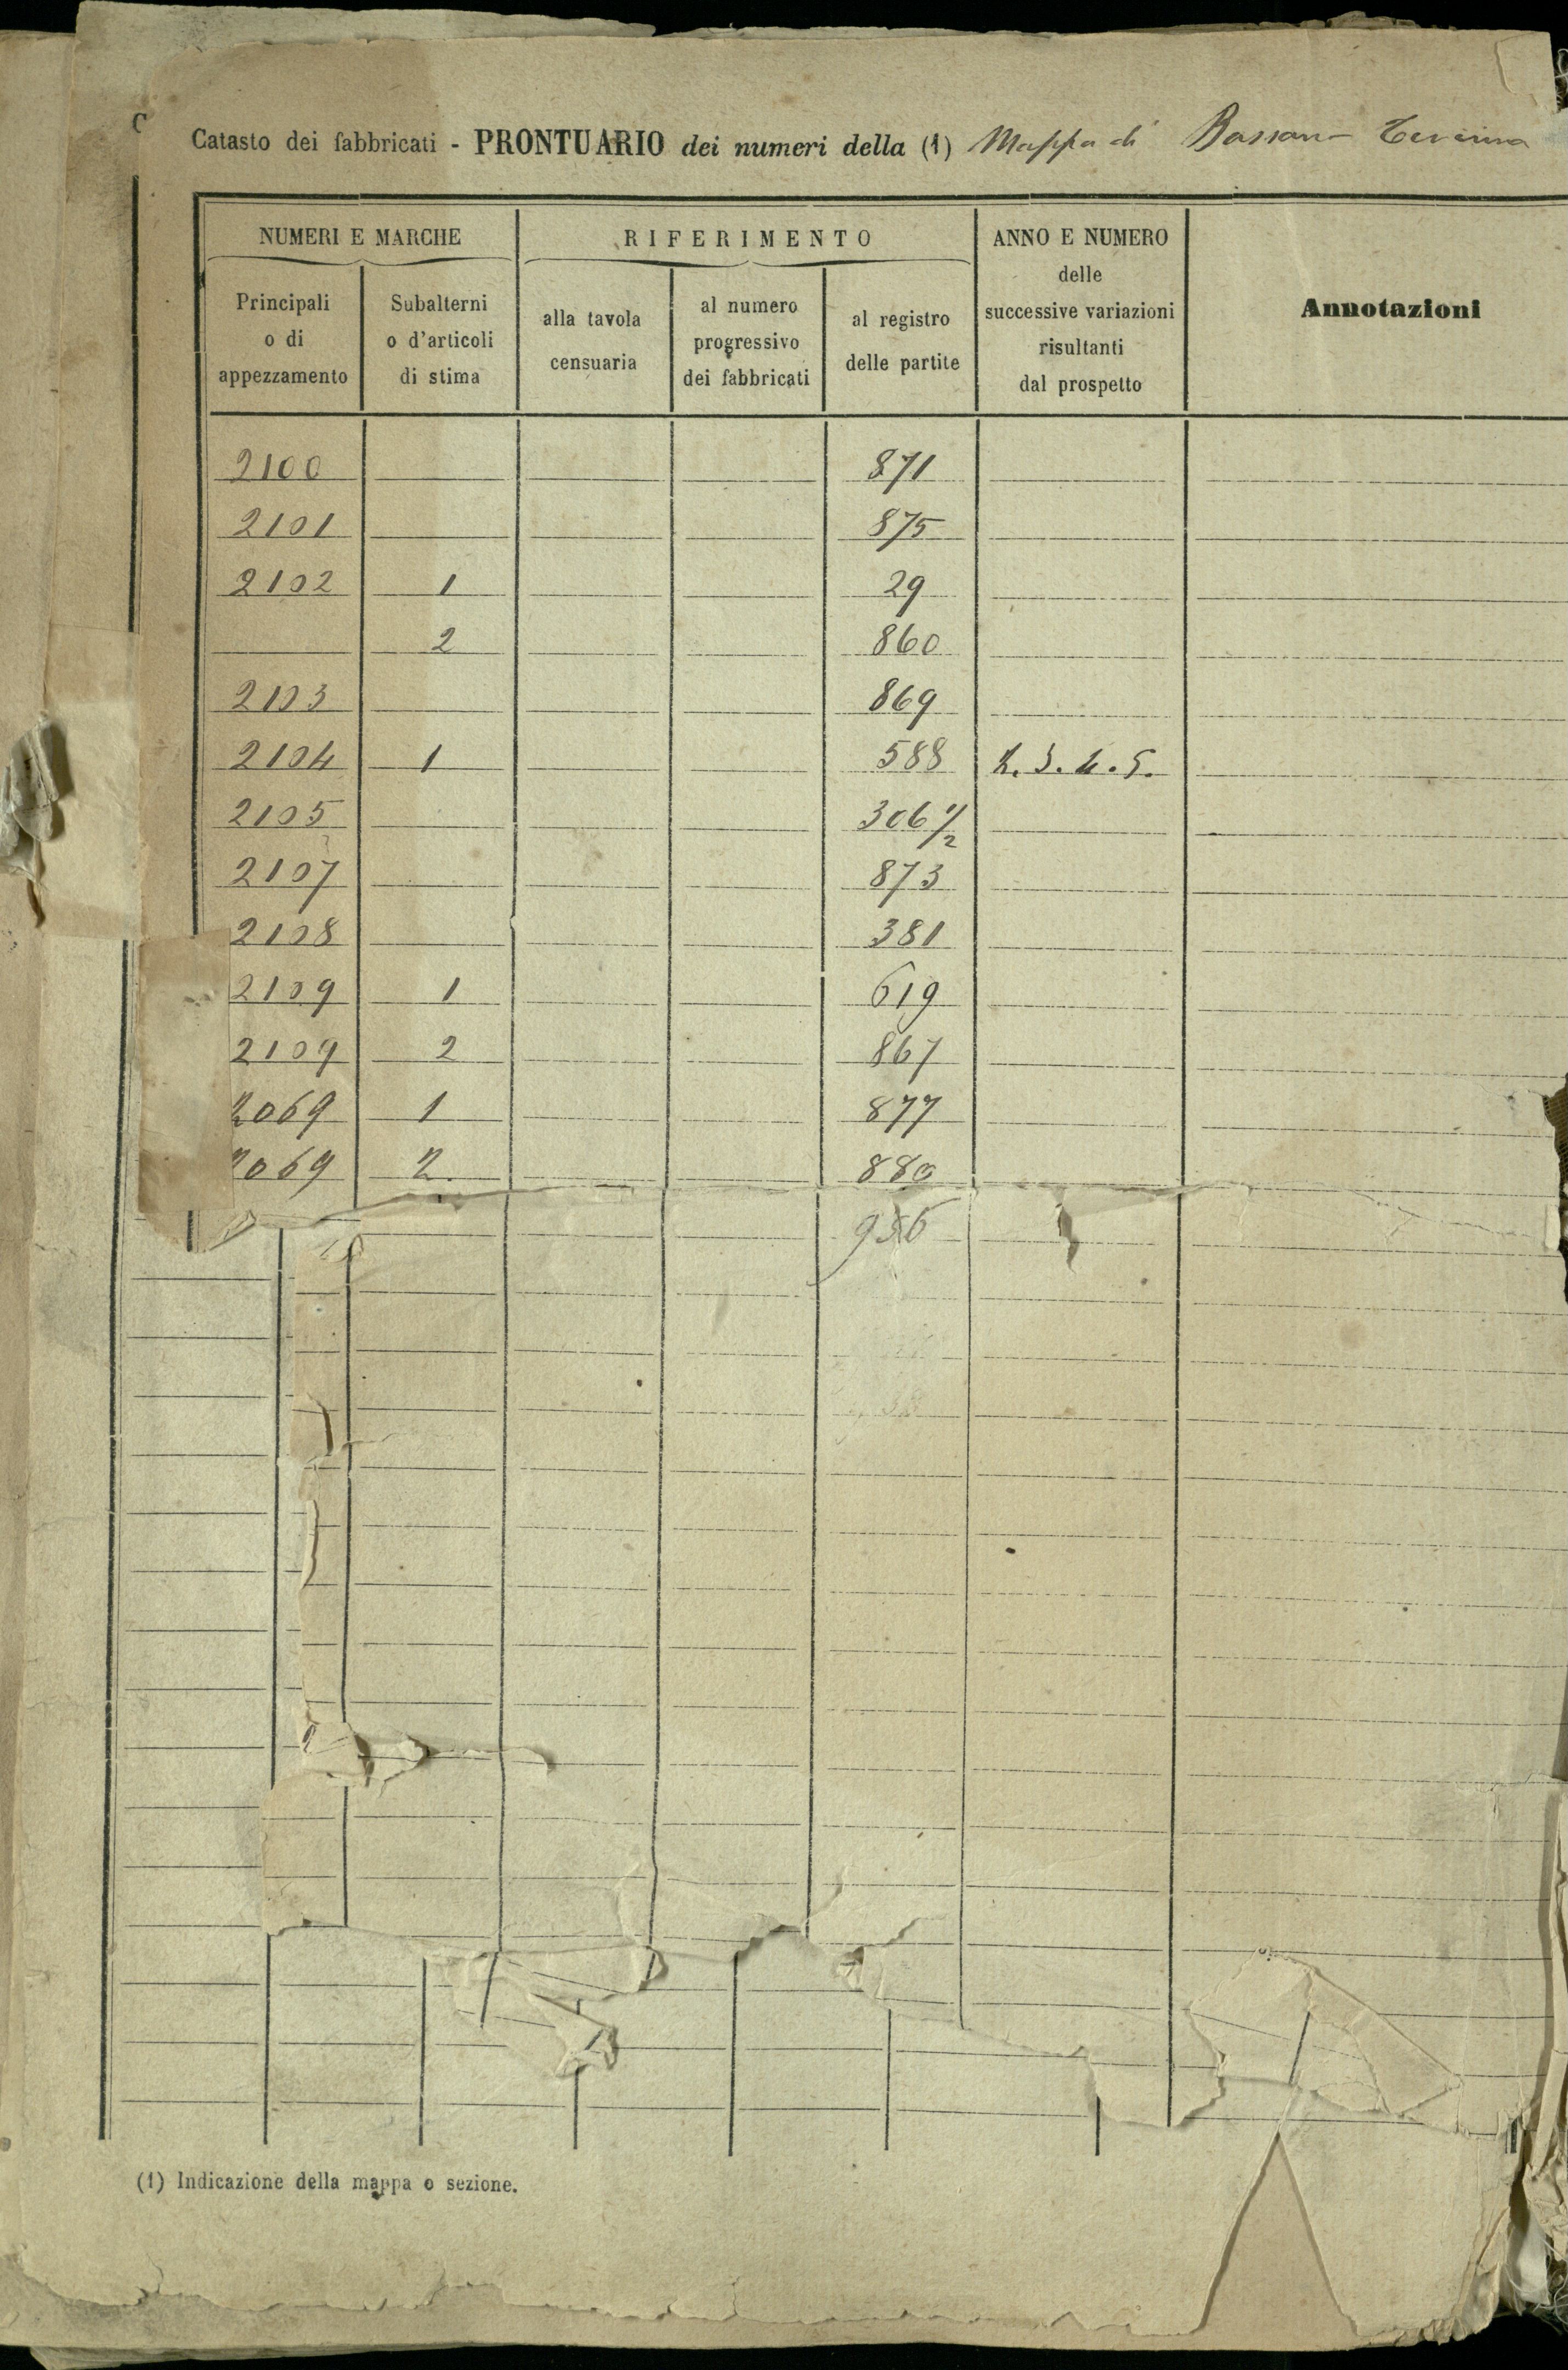 Catasto dei fabbricati - PRONTUARIO dei numeri della (1) Mappa di Bassano Teverina
NUMERI E MARCHE
RIFERIMENTO
ANNO E NUMERO
delle
successive variazioni
risultanti
dal prospetto
Annotazioni
Principali
o di
appezzamento
Subalterni
o d'articoli
di stima
alla tavola
censuaria
al numero
progressivo
dei fabbricati
al registro
delle partite
2100 871
2101 875
2102 1 29
2 860
2103 869
2104 1 588 2.3.4.5.
2105 306 1/2
2107 873
2108 381
2109 1 619
2109 2 867
2069 1 877
2069 2. 880
(1) Indicazione della mappa o sezione.